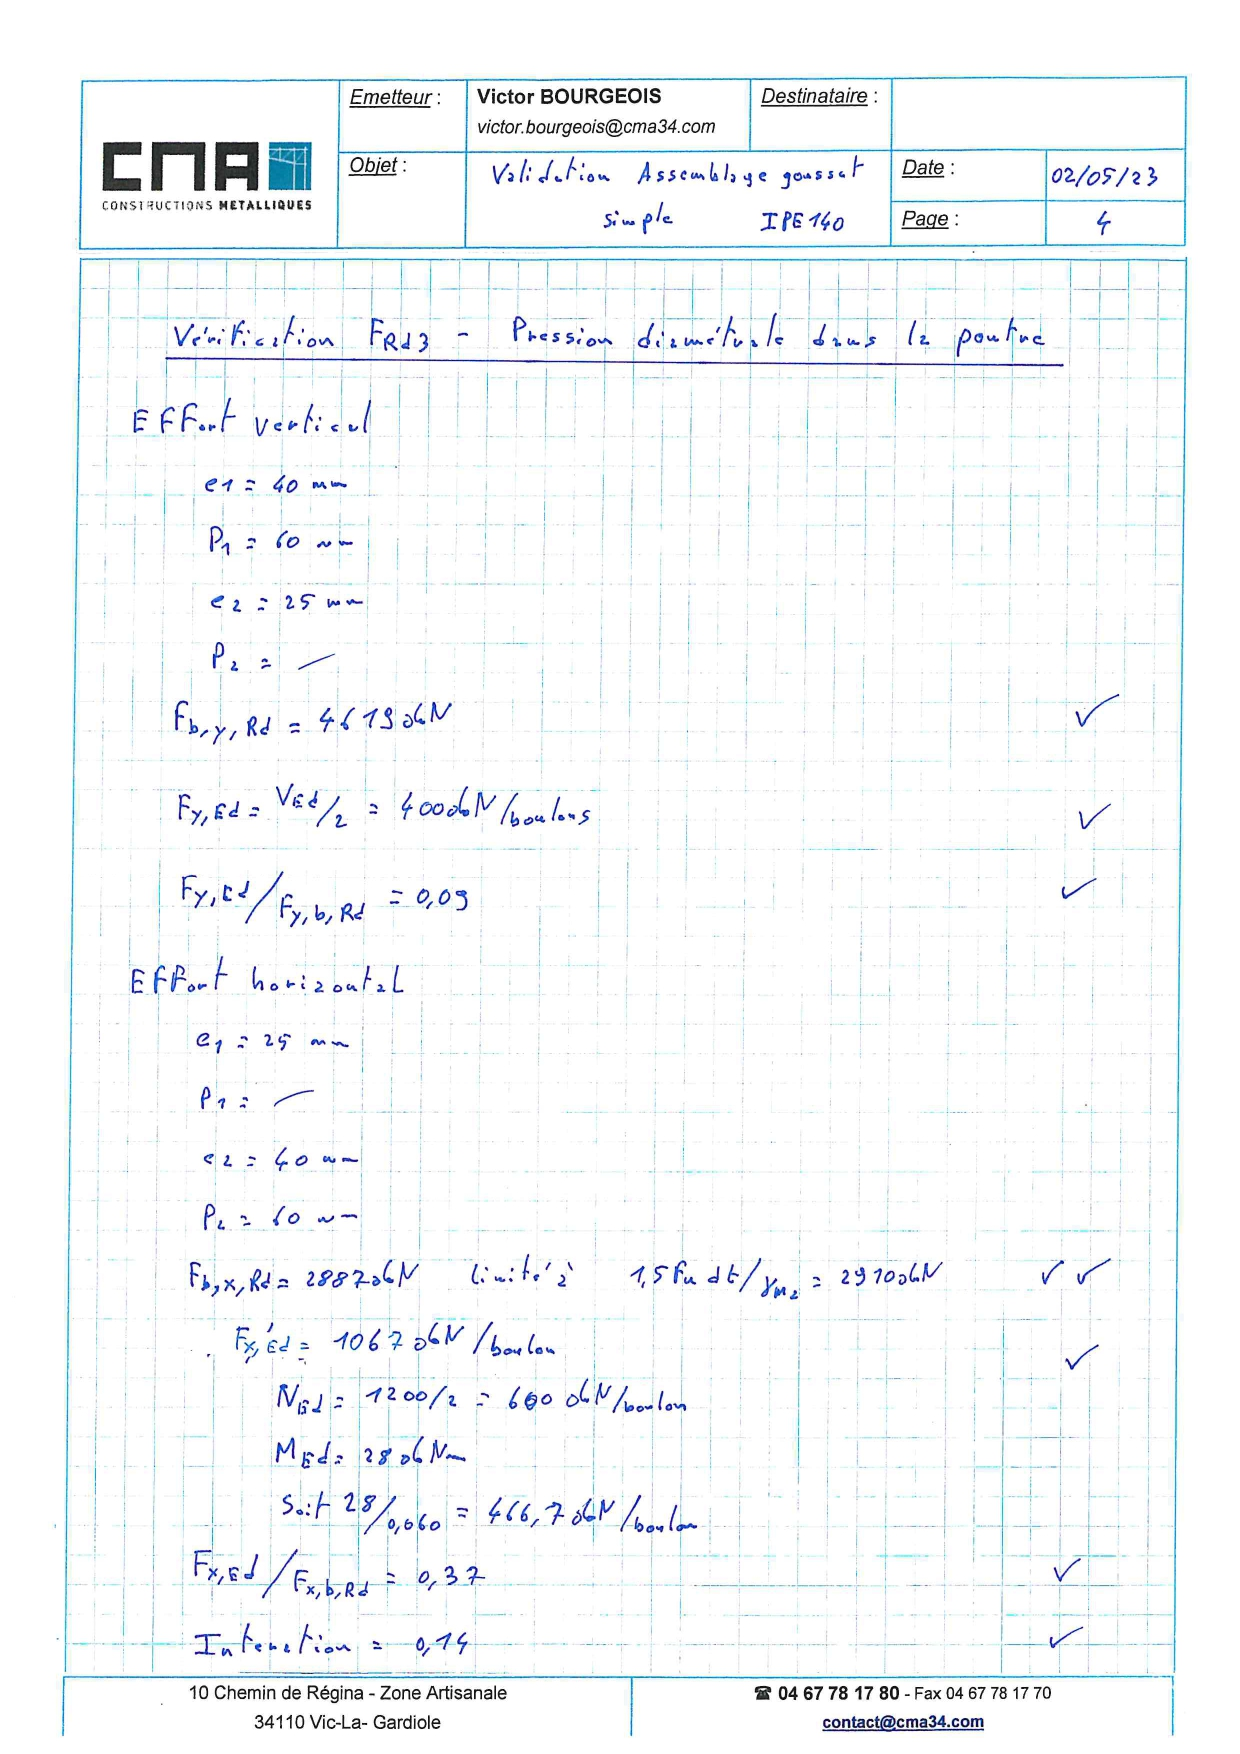 CMA
CONSTRUCTIONS METALLIQUES
Emetteur :
Victor BOURGEOIS
victor.bourgeois@cma34.com
Destinataire :
Objet :
Validation Assemblage gousset
simple IPE 140
Date :
02/05/23
Page :
4
Vérification FRd3 - Pression diamétrale dans la poutre
Effort vertical
e1 = 40 mm
P1 = 60 mm
e2 = 25 mm
P2 = —
Fb,y,Rd = 4619 daN ✓
Fy,Ed = VEd/2 = 400 daN/boulons ✓
Fy,Ed/Fy,b,Rd = 0,09 ✓
Effort horizontal
e1 = 25 mm
P1 = —
e2 = 40 mm
P2 = 60 mm
Fb,x,Rd = 2887 daN limité à 1,5 Fu dt/γM2 = 2970 daN ✓ ✓
Fx,Ed = 1067 daN/boulon ✓
NEd = 1200/2 = 600 daN/boulon
MEd = 28 daNm
Soit 28/0,060 = 466,7 daN/boulon
Fx,Ed/Fx,b,Rd = 0,37 ✓
Interaction = 0,14 ✓
10 Chemin de Régina - Zone Artisanale
34110 Vic-La- Gardiole
☎ 04 67 78 17 80 - Fax 04 67 78 17 70
contact@cma34.com